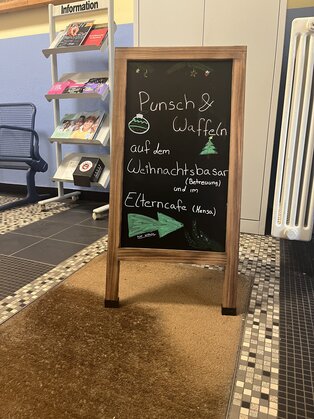 Information
Punsch &
Waffeln
auf dem
Weihnachtsbasar
(Betreuung)
und im
Elterncafe (Mensa)